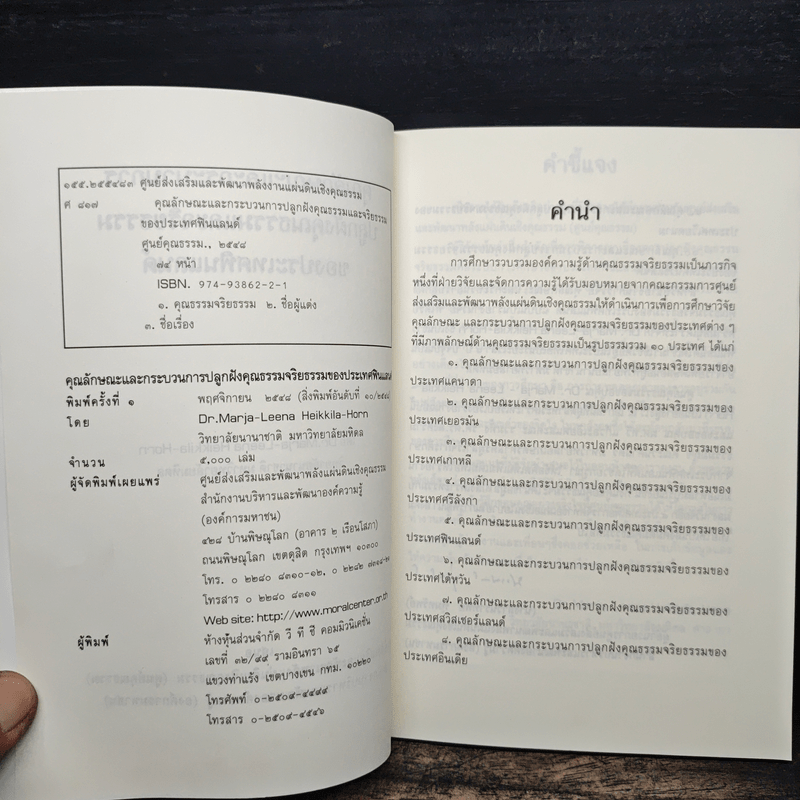 ๑๕๕.๒๕๕๔๘๓ ศูนย์ส่งเสริมและพัฒนาพลังงานแผ่นดินเชิงคุณธรรม
ศ ๘๑๗ คุณลักษณะและกระบวนการปลูกฝังคุณธรรมและจริยธรรม
ของประเทศฟินแลนด์
ศูนย์คุณธรรม., ๒๕๔๘
๗๔ หน้า
ISBN. 974-93862-2-1
๑. คุณธรรมจริยธรรม ๒. ชื่อผู้แต่ง
๓. ชื่อเรื่อง
คุณลักษณะและกระบวนการปลูกฝังคุณธรรมจริยธรรมของประเทศฟินแลนด์
พิมพ์ครั้งที่ ๑ พฤศจิกายน ๒๕๔๘ (สิ่งพิมพ์อันดับที่
โดย Dr.Marja-Leena Heikkila-Horn
วิทยาลัยนานาชาติ มหาวิทยาลัยมหิดล
จำนวน ๕,๐๐๐ เล่ม
ผู้จัดพิมพ์เผยแพร่ ศูนย์ส่งเสริมและพัฒนาพลังแผ่นดินเชิงคุณธรรม
สำนักงานบริหารและพัฒนาองค์ความรู้
(องค์การมหาชน)
๔๒๘ บ้านพิษณุโลก (อาคาร ๒ เรือนโสภา)
ถนนพิษณุโลก เขตดุสิต กรุงเทพฯ ๑๐๓๐๐
โทร. ๐ ๒๒๘๐ ๘๓๑๐-๑๒, ๐ ๒๒๘๒
โทรสาร ๐ ๒๒๘๐ ๘๓๑๑
Web site: http://www.moralcenter.or.th
ผู้พิมพ์ ห้างหุ้นส่วนจำกัด วี ที ซี คอมมิวนิเคชั่น
เลขที่ ๓๒/๙๙ รามอินทรา ๖๕
แขวงท่าแร้ง เขตบางเขน กทม. ๑๐๒๒๐
โทรศัพท์ ๐-๒๕๐๙-๔๔๙๙
โทรสาร ๐-๒๕๐๙-๔๕๔๖
คำนำ
การศึกษารวบรวมองค์ความรู้ด้านคุณธรรมจริยธรรมเป็นภารกิจ
หนึ่งที่ฝ่ายวิจัยและจัดการความรู้ได้รับมอบหมายจากคณะกรรมการศูนย์
ส่งเสริมและพัฒนาพลังแผ่นดินเชิงคุณธรรมให้ดำเนินการเพื่อการศึกษาวิจัย
คุณลักษณะ และกระบวนการปลูกฝังคุณธรรมจริยธรรมของประเทศต่าง ๆ
ที่มีภาพลักษณ์ด้านคุณธรรมจริยธรรมเป็นรูปธรรมรวม ๑๐ ประเทศ ได้แก่
๑. คุณลักษณะและกระบวนการปลูกฝังคุณธรรมจริยธรรมของ
ประเทศแคนาดา
๒. คุณลักษณะและกระบวนการปลูกฝังคุณธรรมจริยธรรมของ
ประเทศเยอรมัน
๓. คุณลักษณะและกระบวนการปลูกฝังคุณธรรมจริยธรรมของ
ประเทศเกาหลี
๔. คุณลักษณะและกระบวนการปลูกฝังคุณธรรมจริยธรรมของ
ประเทศศรีลังกา
๕. คุณลักษณะและกระบวนการปลูกฝังคุณธรรมจริยธรรมของ
ประเทศฟินแลนด์
๖. คุณลักษณะและกระบวนการปลูกฝังคุณธรรมจริยธรรมของ
ประเทศไต้หวัน
๗. คุณลักษณะและกระบวนการปลูกฝังคุณธรรมจริยธรรมของ
ประเทศสวิสเซอร์แลนด์
๘. คุณลักษณะและกระบวนการปลูกฝังคุณธรรมจริยธรรมของ
ประเทศอินเดีย